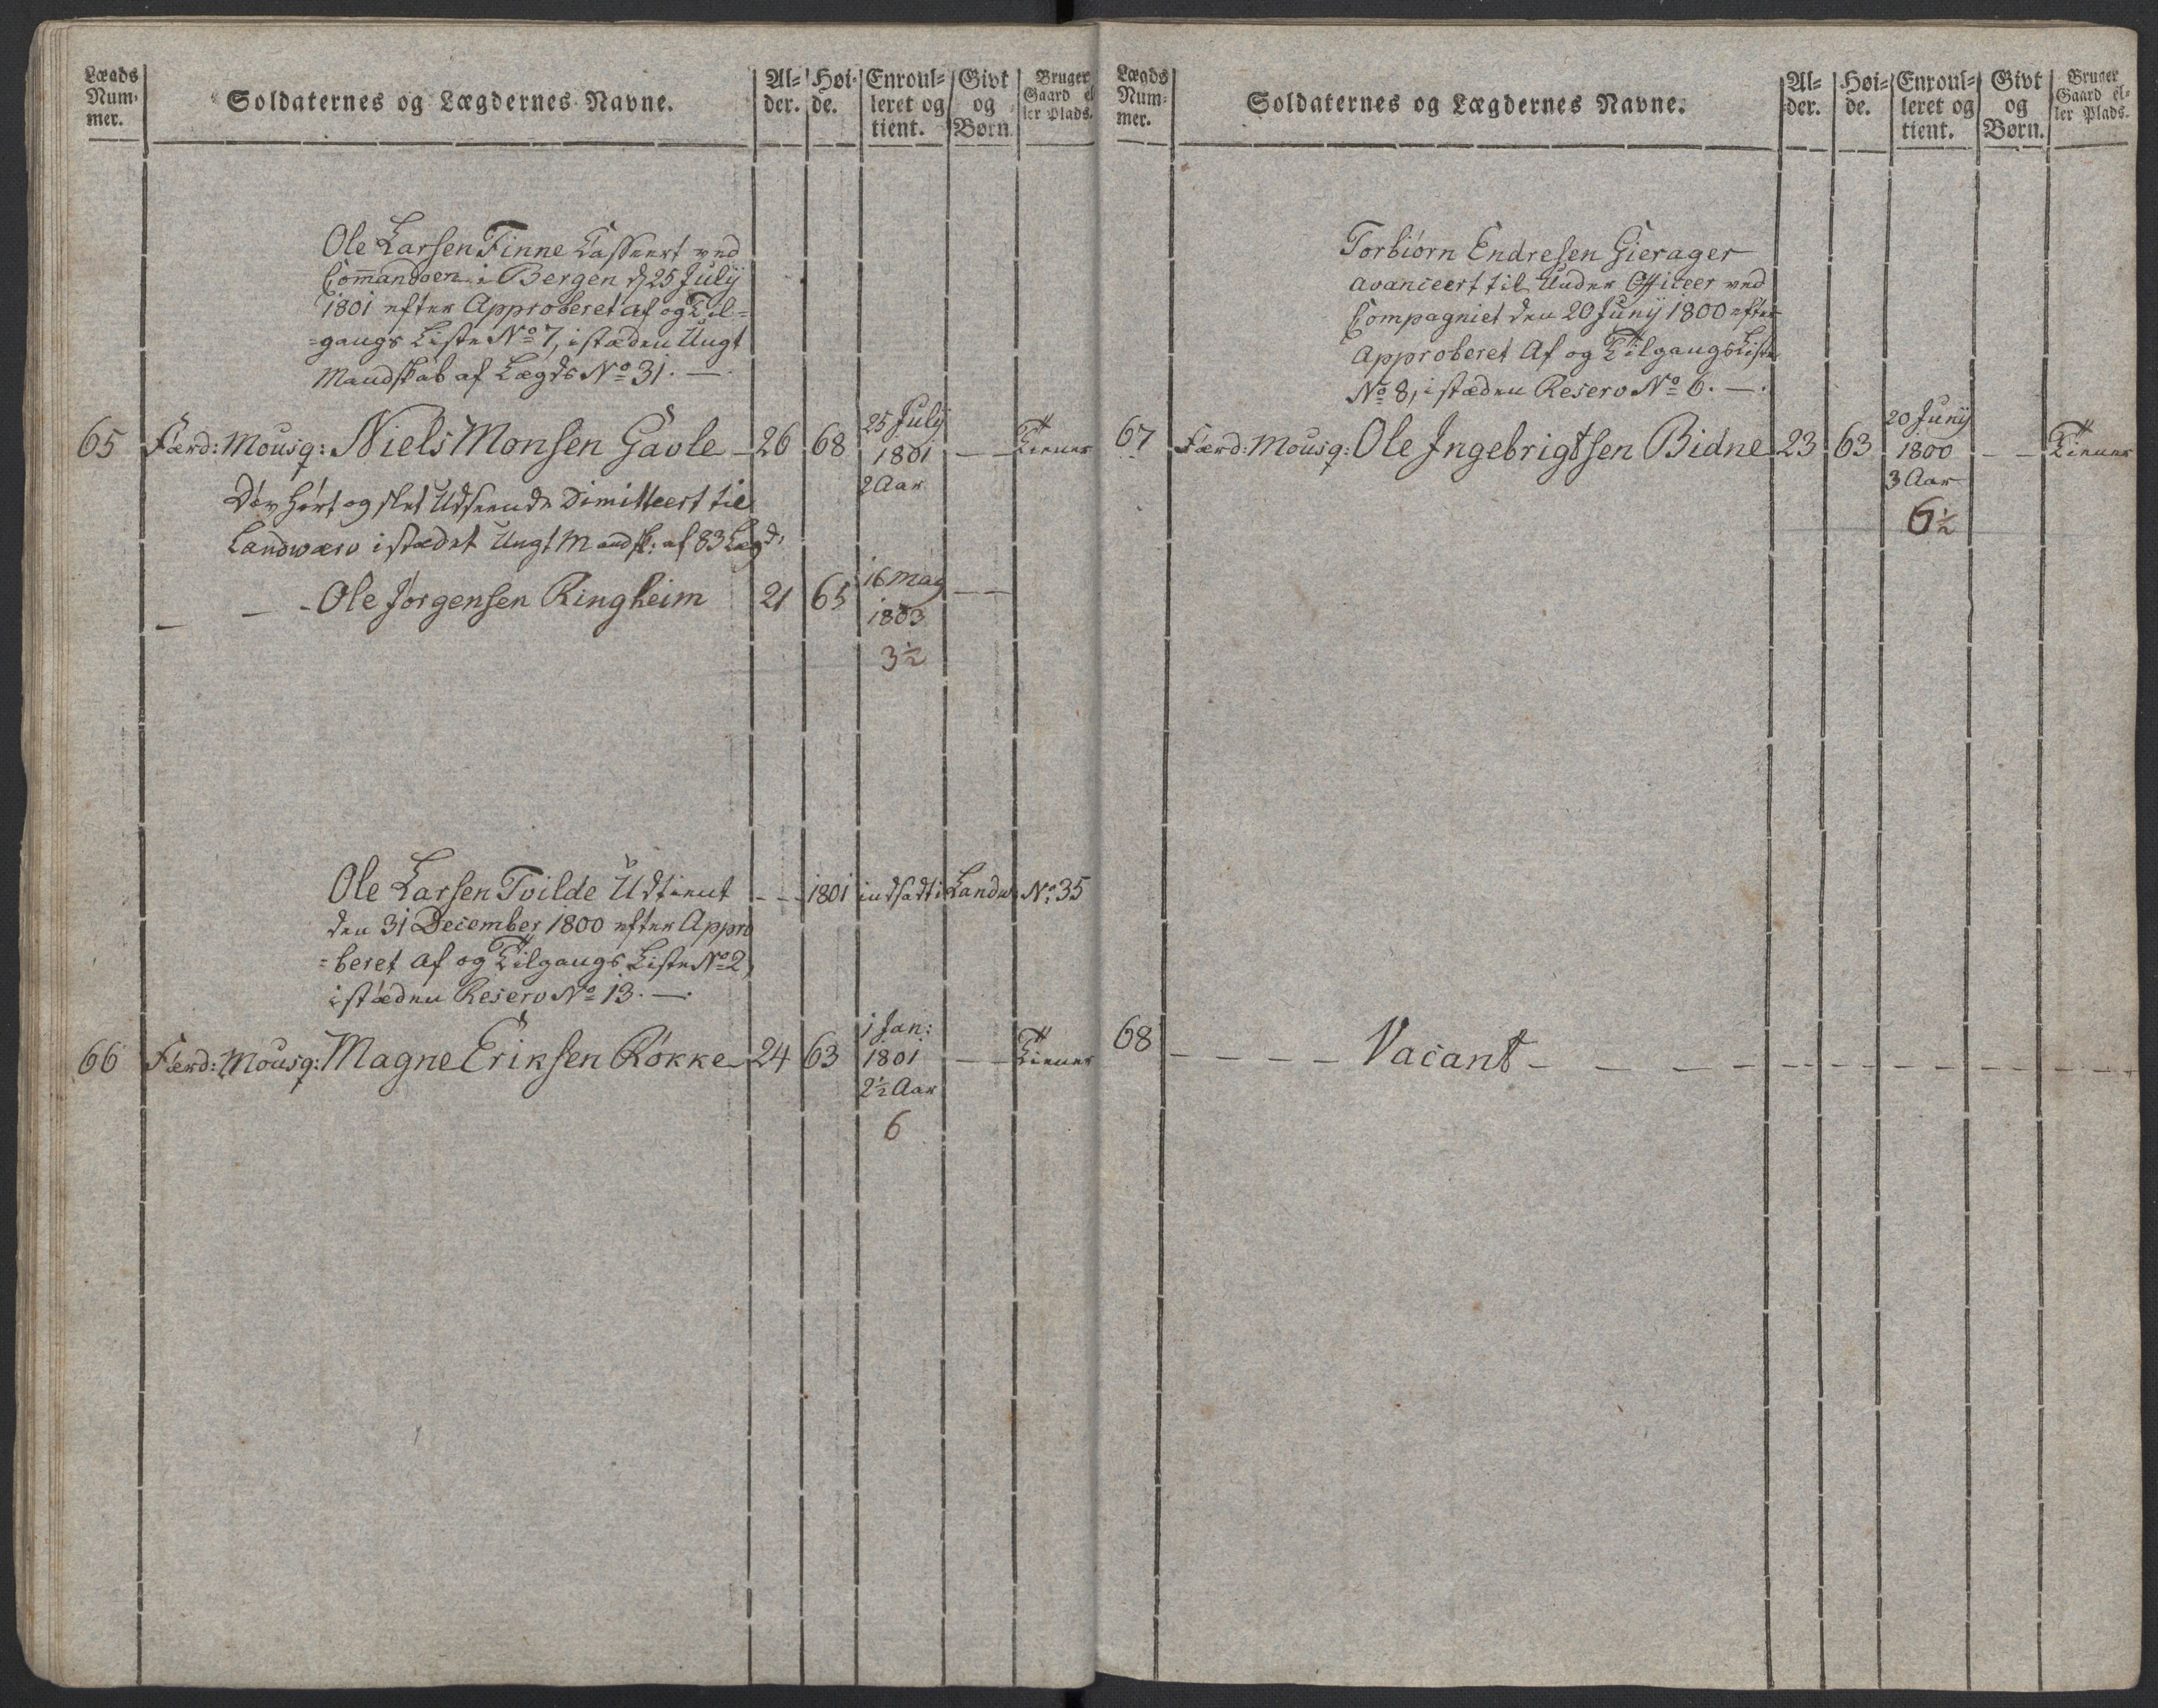 Lægds Num- mer. | Soldaternes og Lægdernes Navne. | Al- der. | Høi- de. | Enroul- leret og tient. | Givt og Børn. | Bruger Gaard el- ler Plads.
Ole Larsen Finne Casseert ved
Commandoen i Bergen d 25 July
1801 efter Approberet af og Til-
-gangs Liste No 7, istæden Ungt
Mandskab af Lægds No 31. —
65 Færd: Mousq: Niels Monsen Gavle 26 68 25 July 1801 2 Aar — — Tiener
Døv hørt og slet Udseende Dimitteert til
Landværn istædet Ungt Mandsk: af 83 Lægd,
— — - Ole Jørgensen Ringheim 21 65 16 May 1803 — —
3½
Ole Larsen Tvilde Udtient - - 1801 indsadt i Landw. No 35
den 31 December 1800 efter Appro
=beret af og Tilgangs Liste No 2,
istæden Reserv No 13. —.
66 Færd: Mousq: Magne Eriksen Røkke 24 63 1 Jan: 1801 2½ Aar — — Tiener
6
Lægds Num- mer. | Soldaternes og Lægdernes Navne. | Al- der. | Høi- de. | Enroul- leret og tient. | Givt og Børn. | Bruger Gaard el- ler Plads.
Torbiørn Endresen Gierager
avanceert til Under Officeer ved
Compagniet den 20 Juny 1800 efter
Approberet Af og Tilgangs Liste
No 8, istæden Reserv No 6. —.
67 Færd: Mousq: Ole Ingebrigtsen Bidne 23 63 20 Juny 1800 3 Aar — — Tiener
6½
68 - - - - Vacant - - - - - -